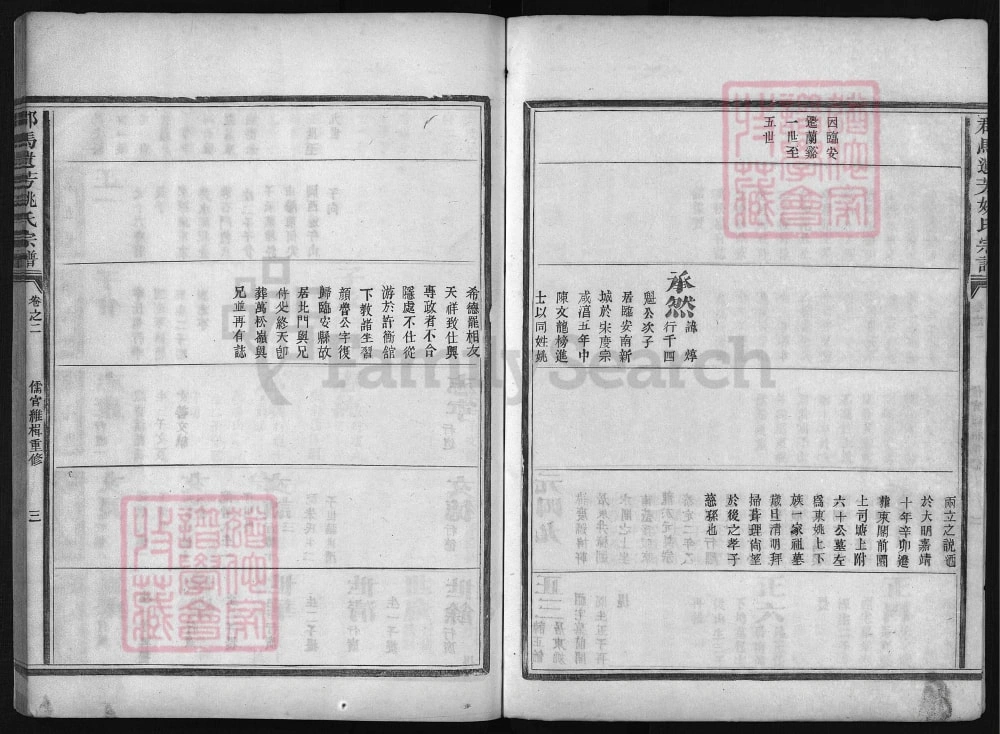 因臨安
鑑蘭谿
一世至
五世
承然
諱焞
行千四
魁公次子
居臨安南新
城於宋度宗
咸淳五年中
陳文龍榜進
士以同姓姚
希德罷相友
天祥致仕興
專政者不合
隱處不仕從
游於許衡舘
下教諸生習
顏魯公字復
歸臨安縣故
居北門與兄
件火終天卽
葬萬松嶺與
兄並再有誌
兩立之說迺
於大明嘉靖
十年辛卯遷
葬東關前園
上司塘上附
六十公墓左
爲東姚上下
族一家祖墓
歲旦清明拜
掃葺理尚望
於後之孝子
慈孫也
馬遺芳姚氏宗譜
卷之二
儒官維楫重修
三
FamilySearch